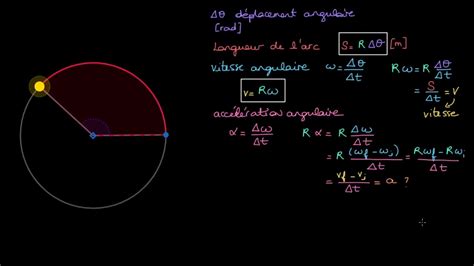 Δθ déplacement angulaire
[rad]
Longueur de l'arc S = R Δθ [m]
vitesse angulaire ω = Δθ/Δt Rω = R Δθ/Δt
v = Rω = S/Δt = v
vitesse
accélération angulaire
α = Δω/Δt R α = R Δω/Δt
= R (ωf - ωi)/Δt = Rωf - Rωi/Δt
= vf - vi/Δt = a ?